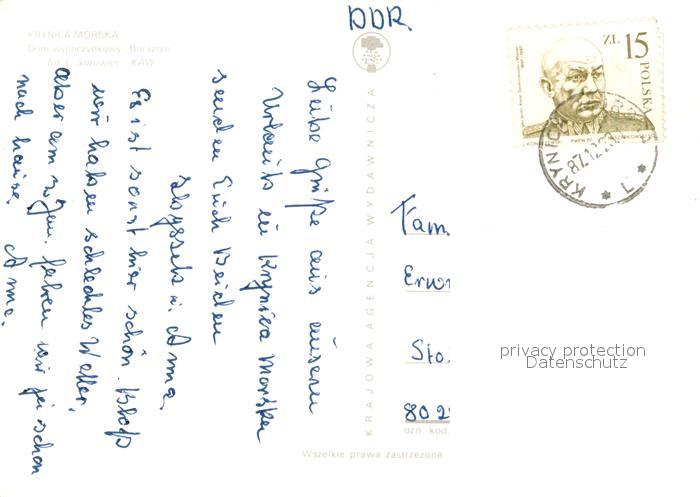 KRYNICA MORSKA
Dom wypoczynkowy „Bursztyn"
fot. L. Surowiec KAW
DDR
ZŁ 15
POLSKA
KRYNICA
87.12.
KRAJOWA AGENCJA WYDAWNICZA
Liebe Grüße aus unseren
Urlaub in Krynica Morska
senden Euch Beiden
Zbyszek u. Anna.
Es ist sonst hier schön. Bloß
wir haben schlechtes Wetter,
aber am fahren wir ja schon
nach hause. Anna.
Fam.
Erw
Sto.
80 2
ozn kod.
Wszelkie prawa zastrzeżone
privacy protection
Datenschutz